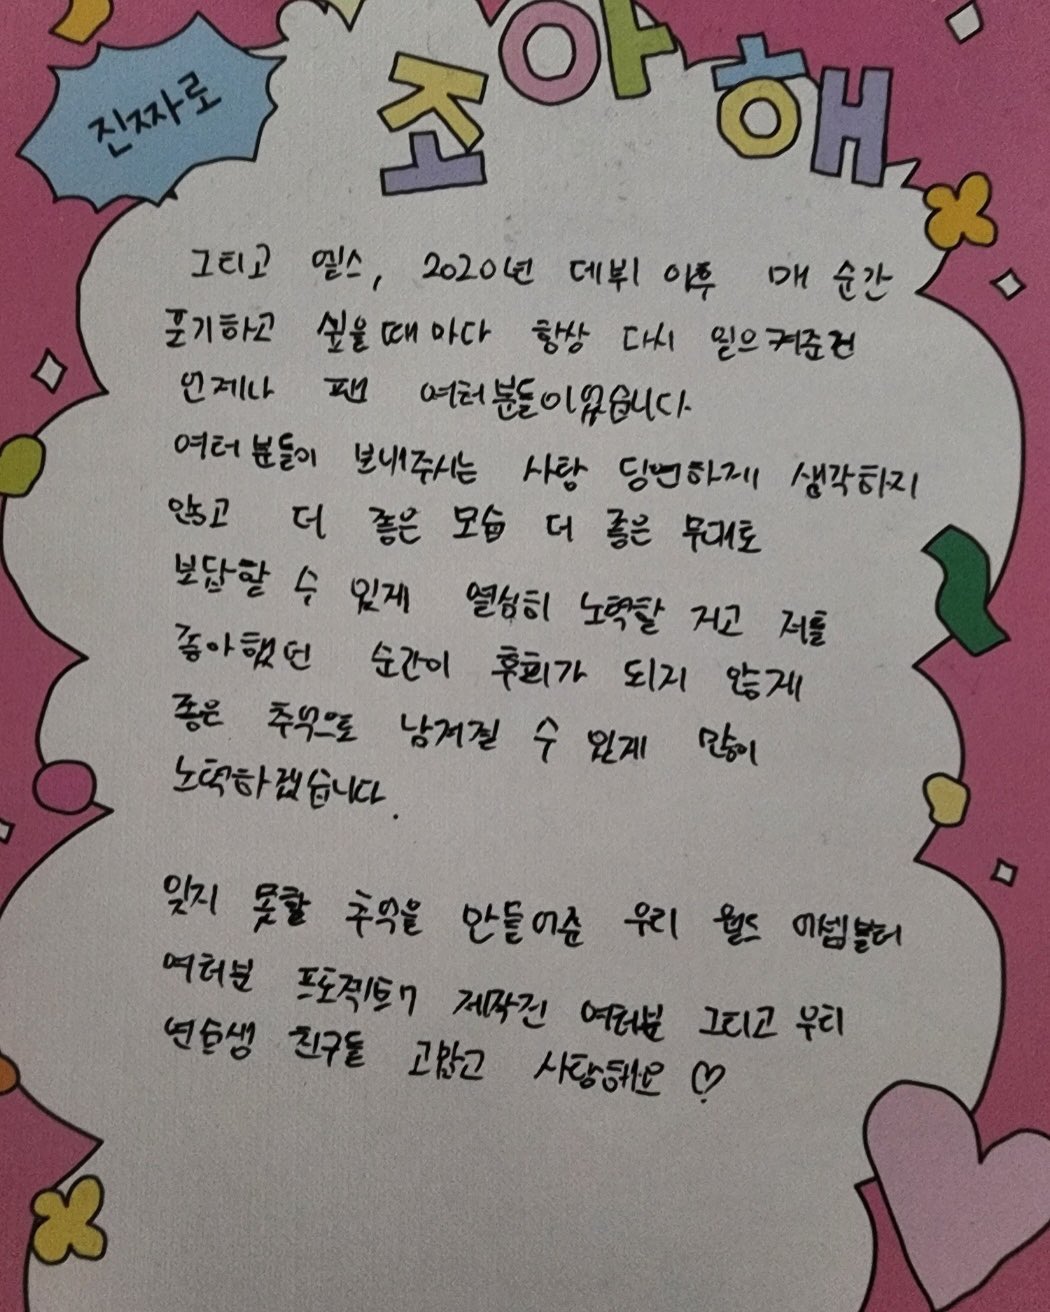 진짜로
조아해
그리고 엘스, 2020년 데뷔 이후 매 순간
포기하고 싶을때마다 항상 다시 일으켜준건
언제나 팬 여러분들이었습니다.
여러분들이 보내주시는 사랑 당연하게 생각하지
않고 더 좋은 모습 더 좋은 무대로
보답할 수 있게 열심히 노력할 거고 저를
좋아했던 순간이 후회가 되지 않게
좋은 추억으로 남겨질 수 있게 많이
노력하겠습니다.
잊지 못할 추억을 만들어준 우리 월드 어셈블러
여러분 프로젝트7 제작진 여러분 그리고 우리
연습생 친구들 고맙고 사랑해요 ♡